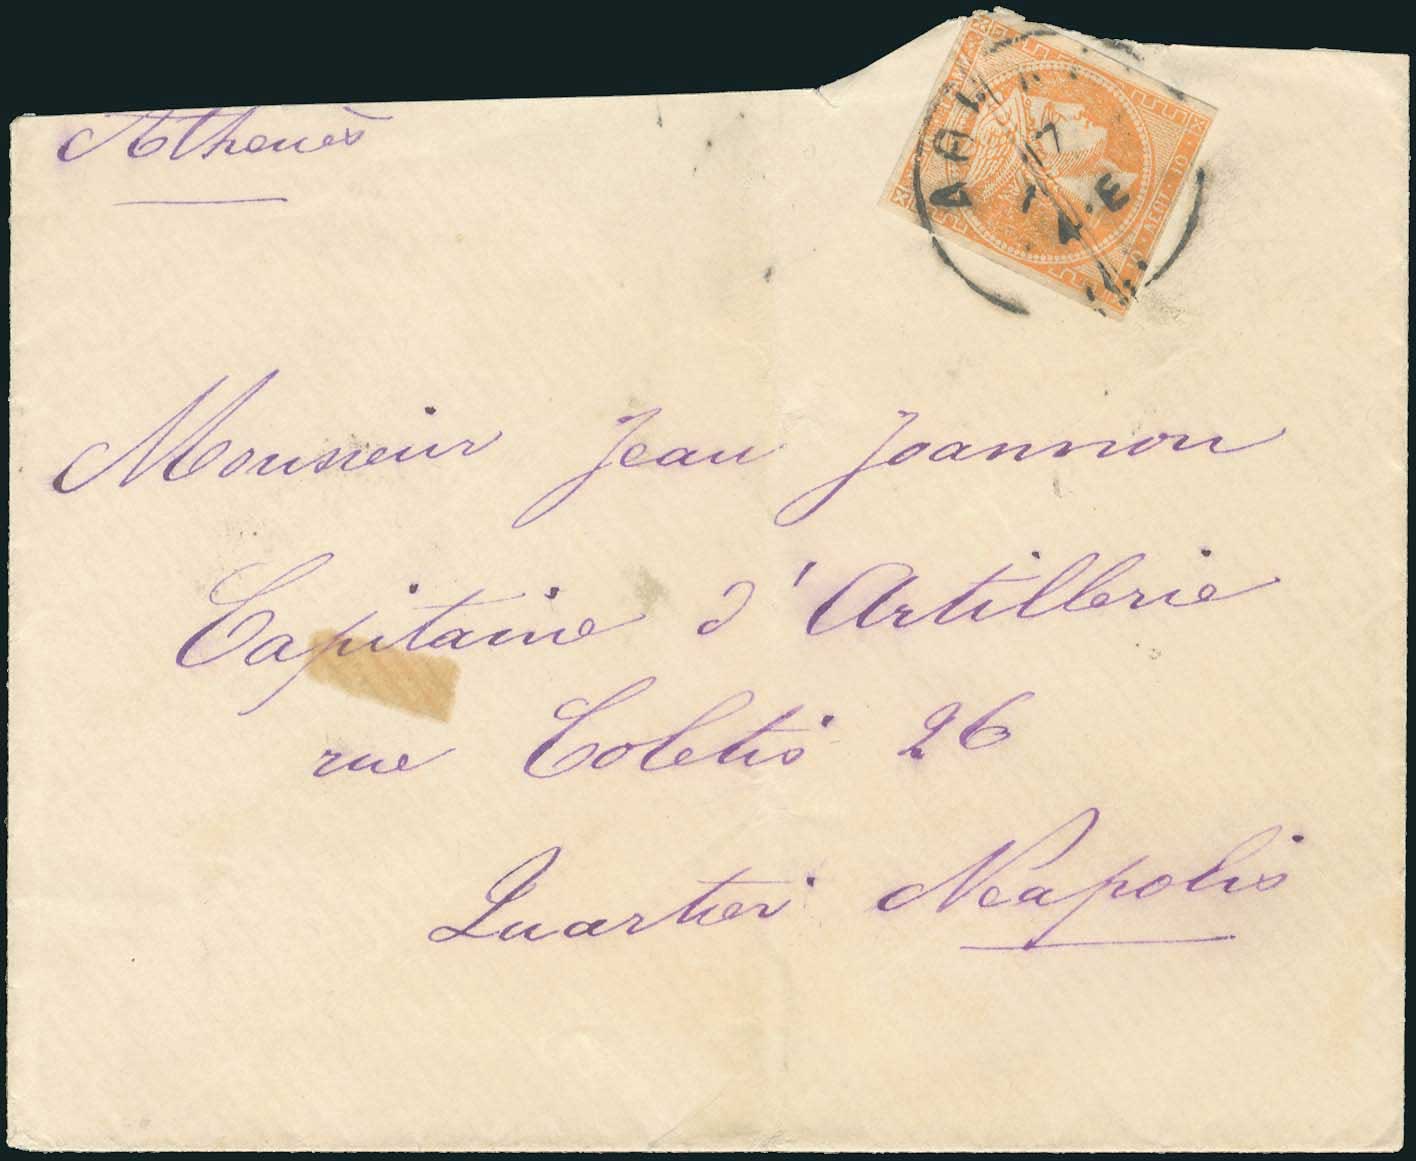 Athenès
Monsieur Jean Joannon
Capitaine d'Artillerie
rue Coletis 26
Quartier Neapolis
10 ΛΕΠΤ. 10